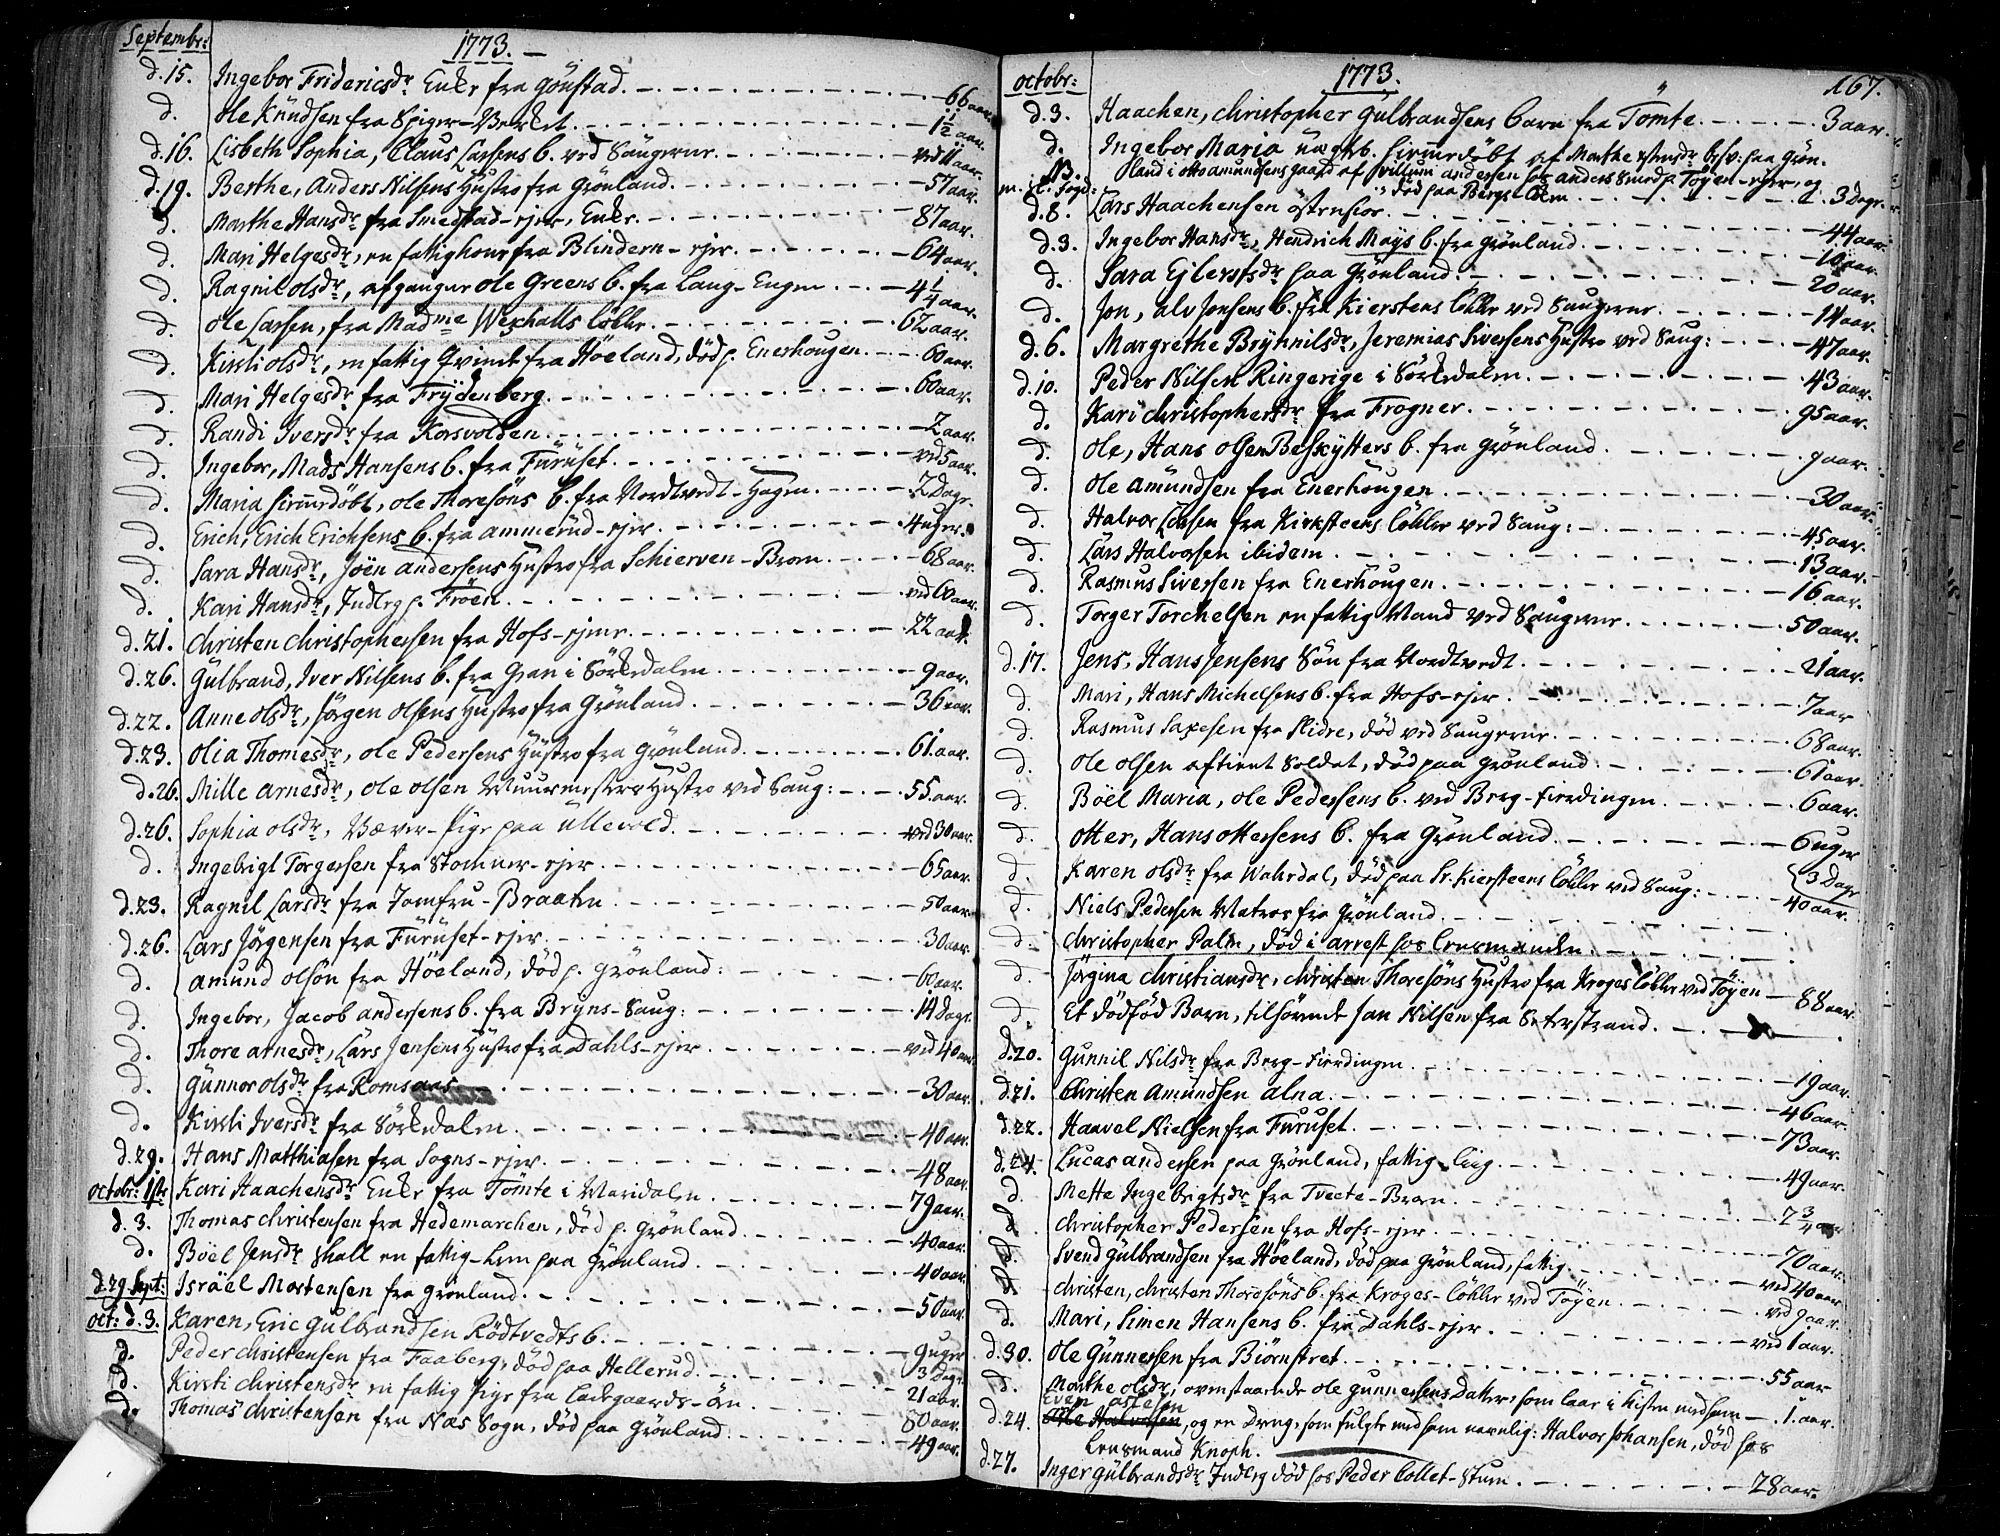 Septembr: 1773.
d. 15. Ingebor Fridericsdr Enke fra Gönstad. 66 aar.
d. Ole Knudsen fra Spiger-Verket. 1 1/2 aar.
d. 16. Lisbeth Sophia, Claus Larsens b. ved Saugerne. ved 11 aar.
d. 19. Berthe, Anders Nilsens Hustro fra Grönland. 57 aar.
d. Marthe Hansdr fra Smedstad-ejer, Enke. 87 aar.
d. Mari Helgesdr, en fattig kone fra Blindern-ejer. 64 aar.
d. Ragnil Olsdr, afgangne Ole Greens b. fra Lang-Engen. 4 1/4 aar.
d. Ole Larsen, fra Madme Wexhalls Löbke. 62 aar.
d. Kirsti Olsdr, en fattig Qvinde fra Höeland, död p. Enerhougen. 60 aar.
d. Mari Helgesdr fra Frydenberg. 60 aar.
d. Randi Iversdr fra Korsvolden. 2 aar.
d. Ingebor, Mads Hansens b. fra Furuset. ved 5 aar.
d. Maria hiemmedöbt, Ole Thoresöns b. fra Nordtvedt-Hagen. 2 Dage.
d. Erich, Erich Erichsens b. fra Ammerud-ejer. 4 uger.
d. Sara Hansdr, Jöen Andersens Hustro fra Schierven-Braaten. 68 aar.
d. Kari Hansdr, Inderg p. Fröen. ved 60 aar.
d. 21. Christen Christophersen fra Hofs-ejene. 22 aar.
d. 26. Gulbrand, Iver Nilsens b. fra Gran i Sörkedalen. 9 aar.
d. 22. Anne Olsdr, Jörgen Olsens Hustro fra Grönland. 36 aar.
d. 23. Olia Thomesdr, Ole Pedersens Hustro fra Grönland. 61 aar.
d. 26. Mille Arnesdr, Ole Olsen Muurmesters Hustro ved Saug: 55 aar.
d. 26. Sophia Olsdr, Væver-Pige paa Ullevold. ved 30 aar.
d. Ingebrigt Torgersen fra Stamner-ejer. 65 aar.
d. 23. Ragnil Larsdr fra Jomfru-Braaten. 50 aar.
d. 26. Lars Jörgensen fra Furuset-ejer. 30 aar.
d. Amund Olsön fra Höeland, död p. Grönland: 60 aar.
d. Ingebor, Jacob Andersens b. fra Bryns-Saug: 14 Dage.
d. Thore Arnesdr, Lars Jensens Hustro fra Dahls-ejer. ved 40 aar.
d. Gunnor Olsdr fra Romsaas. 30 aar.
d. Kirsti Iversdr fra Sörkedalen. 40 aar.
d. 29. Hans Matthiasen fra Sogns-ejer. 48 aar.
Octobr: 1ste Kari Haachensdr Enke fra Tömte i Maridalen. 79 aar.
d. 3. Thomas Christensen fra Hedemarchen, död p. Grönland. 40 aar.
d. Böel Jensdr Skall en fattig-Lem paa Grönland. 40 aar.
d. 29. Sept: Israël Mortensen fra Grönland. 50 aar.
Oct: d. 3. Karen, Eric Gulbrandsen Rödtvedts b. 9 uger
d. Peder Christensen fra Faaberg, död paa Hellerud. 3 Dage
d. Kirsti Christensdr en fattig Pige fra Ladegaards-öen. 21 aar.
d. Thomas Christensen fra Næs Sogn, död paa Grönland. 80 aar.
49 aar.
Octobr: 1773. 167.
d. 3. Haachen, Christopher Gulbrandsens barn fra Tömte. 3 aar.
d. Ingebor Maria uægte b. hiemmedöbt af Marthe Stensdr besv: paa Grön-
NB land i Otto Amundsens gaard af Villum Andersen hos Anders Smed p. Töyen-ejer, og
död paa Bergs-Lökken 3 Dage.
d. 8. Lars Haachensen Östensioe. 44 aar
d. 3. Ingebor Hansdr, Hendrich Mays b. fra Grönland. 10 aar.
d. Sara Ejlertsdr paa Grönland. 20 aar.
d. Jon, Alv Jonsens b. fra Kierstens Löbke ved Saugerne. 14 aar.
d. 6. Margrethe Brynnilsdr, Jeremias Siversens Hustro ved Saug: 47 aar.
d. 10. Peder Nilsen Ringerige i Sörkedalen. 43 aar.
d. Kari Christophersdr fra Frogner. 95 aar.
d. Ole, Hans Olsen Beskytters b. fra Grönland. 9 aar.
d. Ole Amundsen fra Enerhougen. 30 aar.
d. Halvor Larsen fra Kierksteens Löbke ved Saug: 45 aar.
d. Lars Halvorsen ibidem. 13 aar.
d. Rasmus Siversen fra Enerhougen. 16 aar.
d. Torger Torchelsen en fattig Mand ved Saugerne. 50 aar.
d. 17. Jens, Hans Jensens Sön fra Nordtvedt. 21 aar.
d. Mari, Hans Michelsens b. fra Hofs-ejer. 7 aar
d. Rasmus Saxesen fra Slidre, död ved Saugerne. 68 aar.
d. Ole Olsen aftient Soldat, död paa Grönland. 61 aar.
d. Böel Maria, Ole Pedersens b. ved Berg-Fierdingen. 6 aar.
d. Otter, Hans Ottersens b. fra Grönland. 6 uger
d. Karen Olsdr fra Wahrdal, död paa Sr. Kiersteens Löbke ved Saug: 3 Dage
d. Niels Pedersen Matros fra Grönland. 40 aar.
d. Christopher Palm, död i arrest hos Lensmanden.
d. Jörgina Christiansdr, Christen Thoresöns Hustro fra Kroges Löbke ved Töyen 88 aar.
d. Et dödföd Barn, tilhörende Jan Nilsen fra Seterstrand.
d. 20. Gunnil Nilsdr fra Berg-Fierdingen. 19 aar.
d. 21. Christen Amundsen Alna. 46 aar.
d. 22. Haavel Nielsen fra Furuset. 73 aar.
d. 24. Lucas Andersen paa Grönland, fattig Liig. 49 aar.
d. Mette Ingebrigtsdr fra Tveete-Braaten. 2 3/4 aar
d. Christopher Pedersen fra Hofs-ejer. 70 aar.
d. Svend Gulbrandsen fra Höeland, död paa Grönland, fattig. ved 40 aar
d. Christen, Christen Thoresöns b. fra Kroges-Löbke ved Töyen. ved 9 aar.
d. Mari, Simen Hansens b. fra Dahls-ejer. ved 1 aar.
d. 30. Ole Gunnersen fra Biörnstret. 55 aar
d. Marthe Olsdr, ovenstaaende Ole Gunnersens Datter, som laae i Kisten med ham 1 aar.
d. 24. Even og en Dreng, som fulgte med ham navnlig: Halvor Johansen, död hos
Lensmand Knoph.
d. 27. Inger Gulbrandsdr Inderg död hos Peder Collet-Stuen. 28 aar.